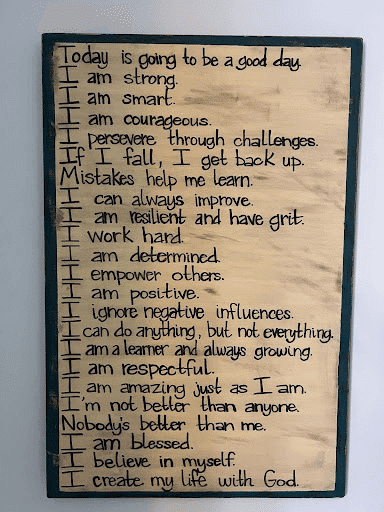 Today is going to be a good day.
I am strong.
I am smart.
I am courageous.
I persevere through challenges.
If I fall, I get back up.
Mistakes help me learn.
I can always improve.
I am resilient and have grit.
I work hard.
I am determined.
I empower others.
I am positive.
I ignore negative influences.
I can do anything, but not everything.
I am a learner and always growing.
I am respectful.
I am amazing just as I am.
I'm not better than anyone.
Nobody's better than me.
I am blessed.
I believe in myself.
I create my life with God.